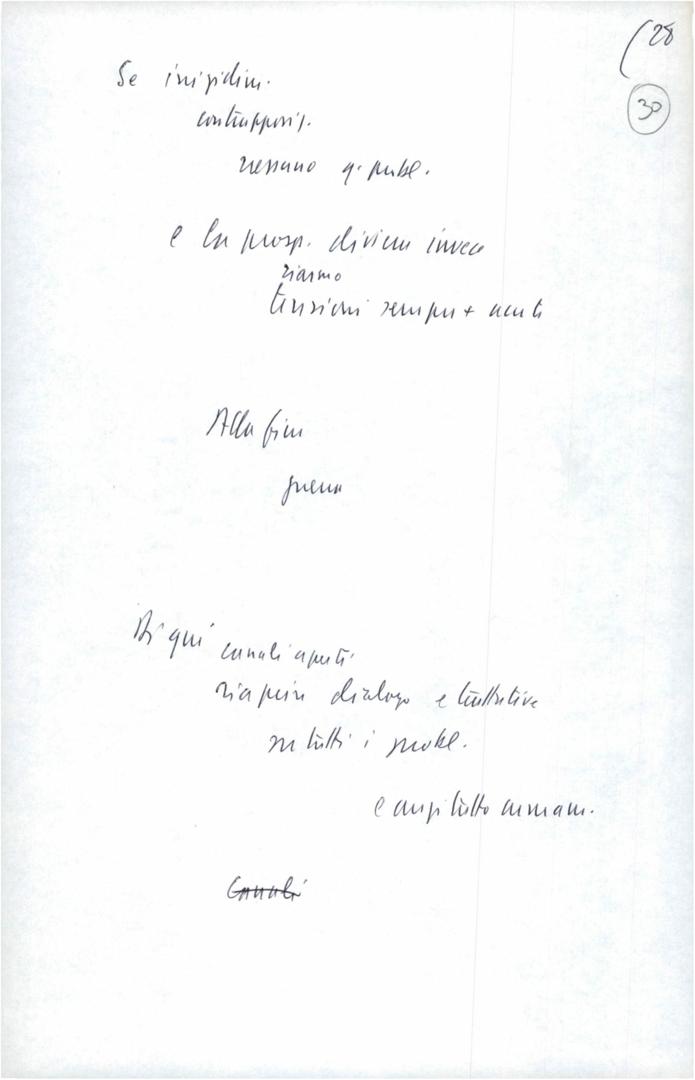 (28
30
Se irrigidim.
contrapposiz.
nessuno q. probl.
e la prosp. diviene invece
riarmo
tensioni sempre + acute
Alla fine
guerra
Di qui canali aperti
riaprire dialogo e trattative
su tutti i probl.
e anzitutto armam.
Canali